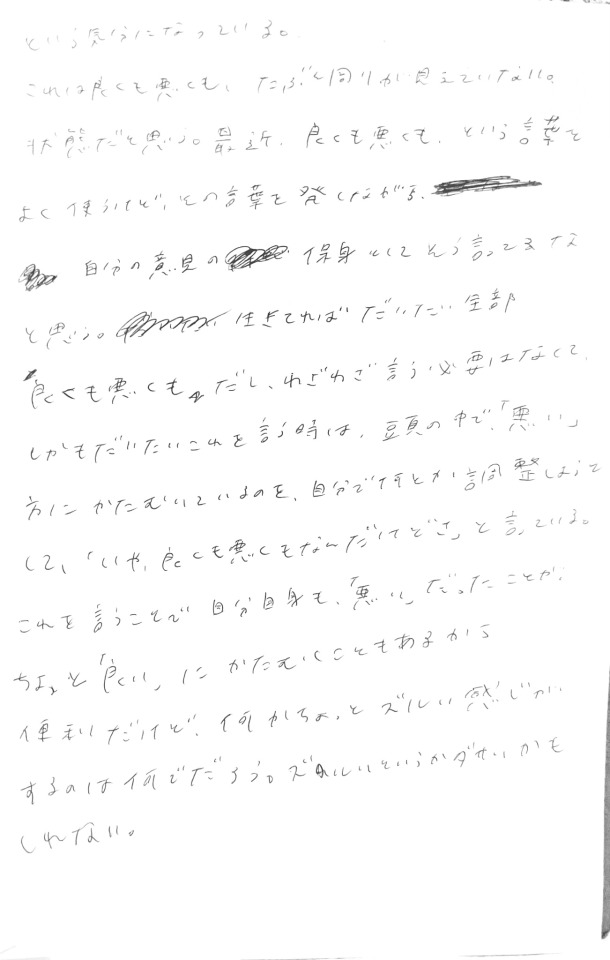 という気分になっている。
これは良くも悪くも、たぶん周りが見えていない。
状態だと思う。最近、良くも悪くも、という言葉を
よく使うけど、その言葉を発しながら、
自分の意見の 保身としてそう言ってるな
と思う。 生きてれば だいたい 全部
良くも悪くもだし、わざわざ言う必要はなくて、
しかもだいたいこれを言う時は、頭の中で、「悪い」
方に かたむいているのを、自分で何とか調整しようと
して、「いや、良くも悪くもなんだけどさ」と言っている。
これを言うことで自分自身も、「悪い」だったことが、
ちょっと「良い」に かたむくこともあるから
便利だけど、何かちょっとズルい感じが
するのは何でだろう。ズルいというかダサいかも
しれない。